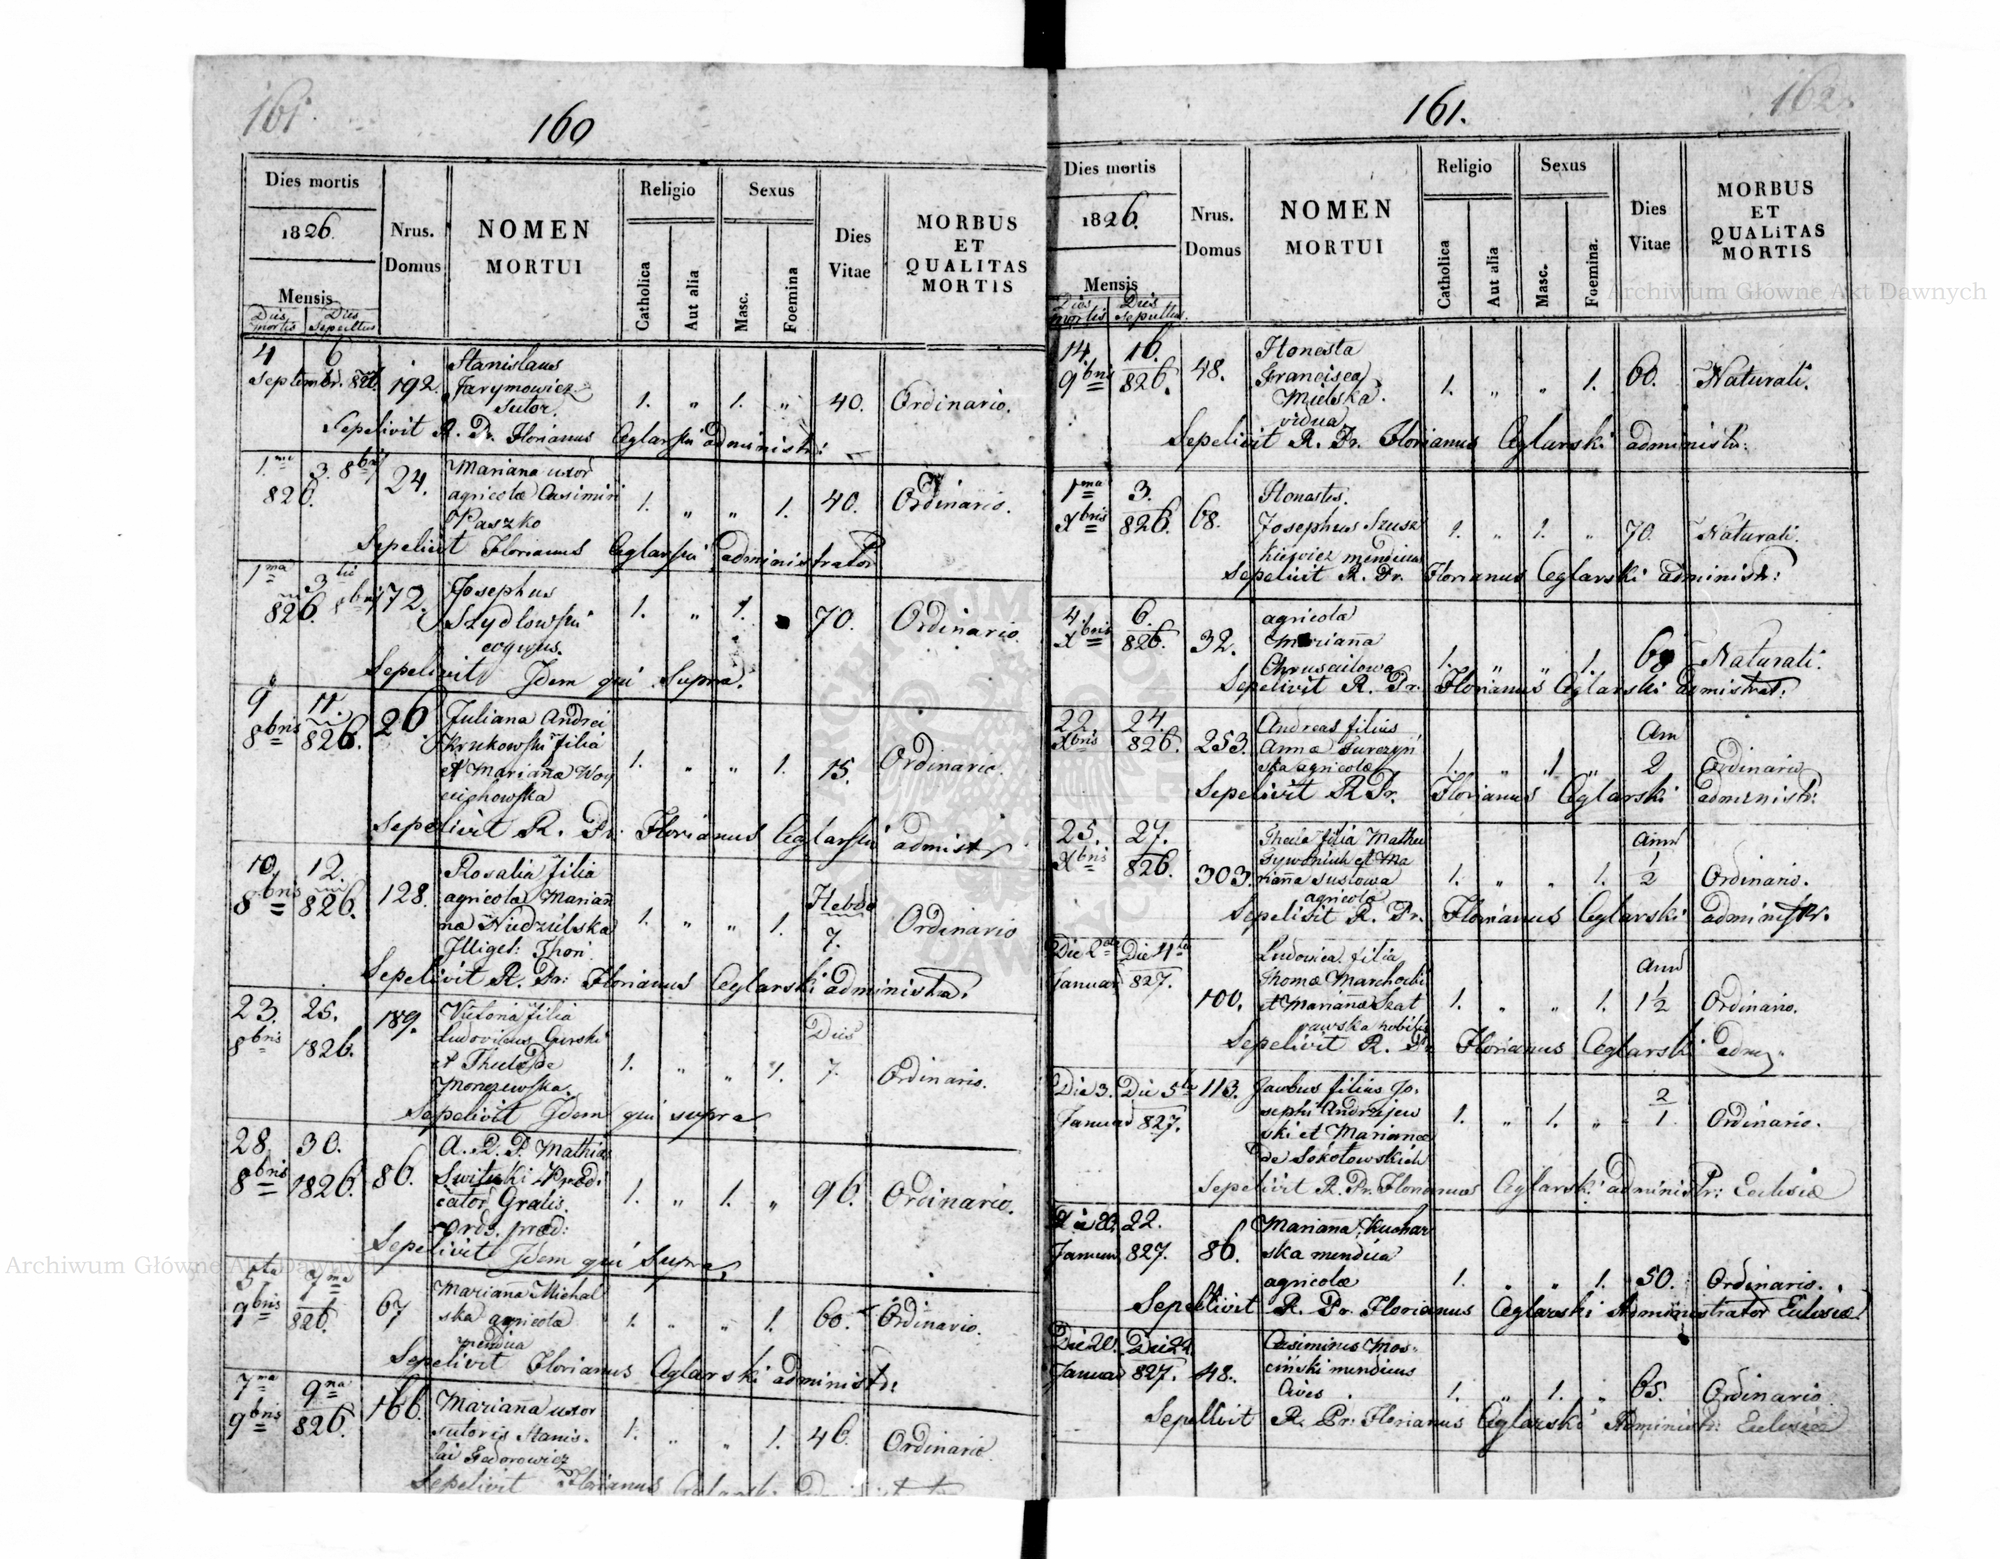 161.
160
Dies mortis
1826.
Mensis
Dies mortis
Dies Sepultus
Nrus. Domus
NOMEN MORTUI
Religio
Catholica
Aut alia
Sexus
Masc.
Foemina
Dies Vitae
MORBUS ET QUALITAS MORTIS
4 6 Stanislaus
Septembr. 826 192. Jarymowicz
Sutor. 1. „ 1. „ 40. Ordinario.
Sepelivit R. Pr. Florianus Ceglarski administr:
1ma 3. 8bris 24. Mariana uxor
826. agricolæ Casimiri 1. „ „ 1. 40. Ordinario.
Paszko
Sepelivit Florianus Ceglarski administrator
1ma 3tia 172. Josephus
826. 8bris Szydlowski 1. „ 1. 70. Ordinario.
Sepelivit Idem qui Supra.
9 11. 26. Juliana Andrei
8bris 826. Krukowski filia
et Mariañæ Woy 1. „ „ 1. 15. Ordinario.
ciehowska
Sepelivit R. Pr: Florianus Ceglarski admist
10 12. 128. Rosalia filia
8bris 826. agricola Mariañ Hebdo
næ 1. „ „ 1. 7. Ordinario
Illiget: Thori
Sepelivit R. Pr: Florianus Ceglarski administra.
23. 25. 189. Victoria filia
8bris 1826. Ludovicus Gurski Dies
et Theclæ De 1. „ „ 1. 7. Ordinario.
Sepelivit Idem qui supra
28. 30. 86. A. R. P. Mathias
8bris 1826. Prædi
cator Gralis. 1. „ 1. „ 96. Ordinario.
Ords. præd:
Sepelivit Idem qui Supra.
5ta 7ma 67 Mariaña Michal
9bris 826. ska agricola 1. „ „ 1. 60. Ordinario.
mendica
Sepelivit Florianus Ceglarski administr:
7ma 9na 166. Mariana uxor
9bris 826. sutoris Stanis- 1. „ „ 1. 46. Ordinario
lai Fedorowicz
Sepelivit Florianus Ceglarski
161.
162.
Dies mortis
1826.
Mensis
Dies mortis
Dies Sepultus.
Nrus. Domus
NOMEN MORTUI
Religio
Catholica
Aut alia
Sexus
Masc.
Foemina.
Dies Vitae
MORBUS ET QUALiTAS MORTIS
14. 16. 48. Honesta
9bris 826. Francisca 1. „ „ 1. 60. Naturali.
Mielska
vidua
Sepelivit R. Pr. Florianus Ceglarski administr:
1ma 3. Honestus.
Xbris 826. 68. Josephus Szusz 1. „ 1. „ 70. Naturali.
kiewicz mendicus
Sepelivit R. Pr. Florianus Ceglarski administr:
4. 6. agricola
Xbris 826. 32. Mariaña
1. „ „ 1. 68 Naturali.
Sepelivit R. Pr. Florianus Ceglarski admistrat.
22. 24. Andreas filius Ann
Xbris 826. 253. Annæ
ska agricolæ 1. „ 1 „ 2 Ordinario
Sepelivit R Pr. Florianus Ceglarski administr:
25. 27. Thecla filia Mathei Ann
Xbris 826. 303. et Ma 1/2
riañna Susłowa 1. „ „ 1. Ordinario.
agricola
Sepelivit R. Pr. Florianus Ceglarski administr.
Die 2da Die 4ta Ludovica filia
Januar 827. Thomæ Marchocki Ann
100. et Mariañæ Szat 1. „ „ 1. 1 1/2 Ordinario.
pawska nobilis
Sepelivit R. Pr Florianus Ceglarski
Die 3. Die 5ta 113. Jacobus filius Jo.
Januar 827. sephi Andrzejew 1. „ 1. „ 2/1 Ordinario.
ski et Marianæ
de Sokołowskich
Sepelivit R. Pr. Florianus Ceglarski administr: Eclisiæ
22. Mariana Kuchar
Januar 827. 86. ska mendica
agricolæ 1. „ „ 1. 50. Ordinario.
Sepelivit R. Pr. Florianus Ceglarski Administrator Eclisiæ
Die 20. Die 22 Casimirus Mos-
Januar 827. 48. ciński mendicus
Cives. 1. „ 1. „ 65. Ordinario
Sepelivit R. Pr: Florianus Ceglarski Administr: Eclisiæ
Archiwum Główne Akt Dawnych
Archiwum Główne Akt Dawnych
ARCHIWUM GŁÓWNE AKT DAWNYCH